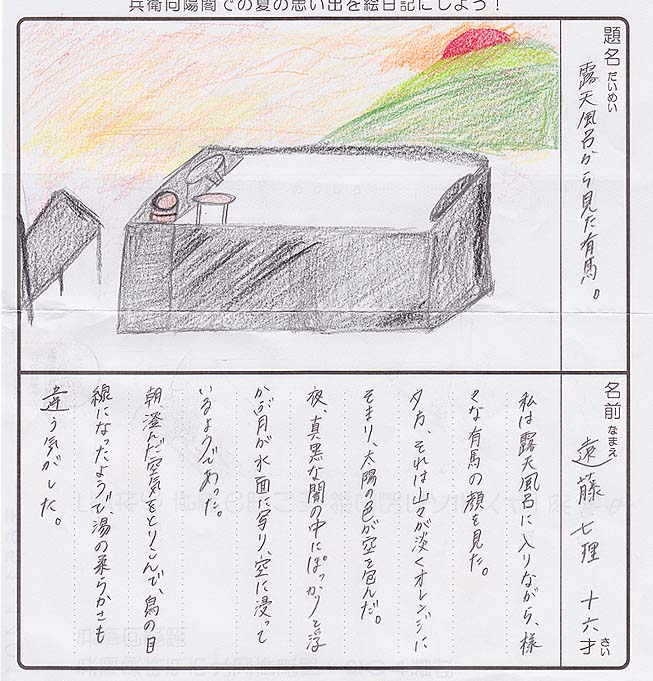 兵衛向陽閣での夏の思い出を絵日記にしよう！
題名 だいめい
露天風呂から見た有馬。
名前 なまえ
遠藤七理 十六才 さい
私は露天風呂に入りながら、様
々な有馬の顔を見た。
夕方、それは山々が淡くオレンジに
そまり、太陽の色が空を包んだ。
夜、真黒な闇の中にぽっかりと浮
かぶ月が水面に写り、空に浸って
いるようであった。
朝、澄んだ空気をとりこんで、鳥の目
線になったようで、湯の柔らかさも
違う気がした。